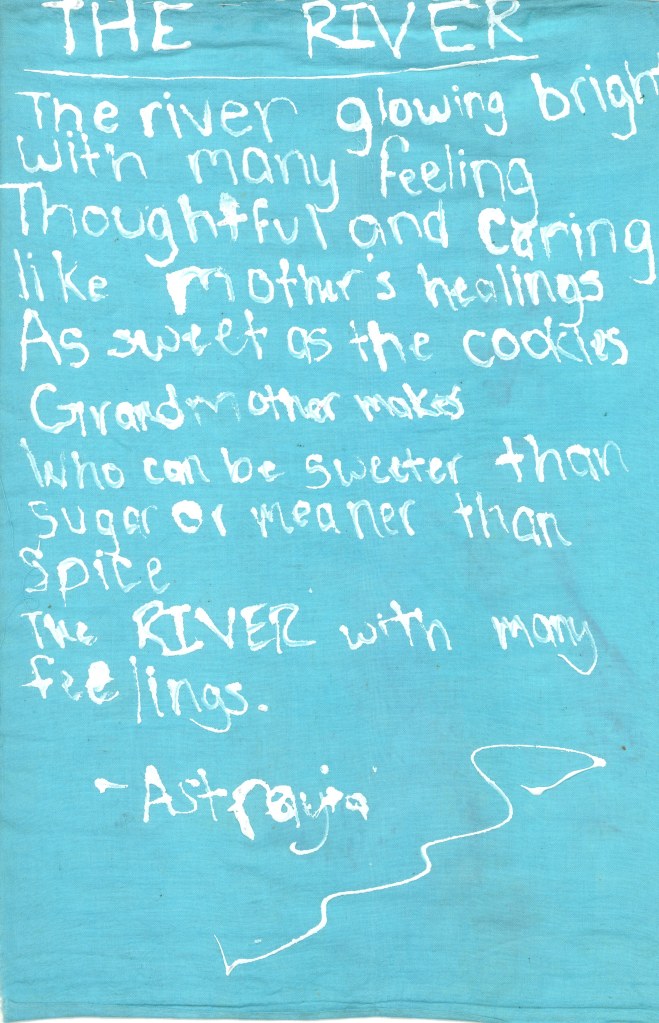 THE RIVER
The river glowing bright
with many feeling
Thoughtful and caring
like mother's healings
As sweet as the cookies
Grandmother makes
Who can be sweeter than
sugar or meaner than
Spice
The RIVER with many
feelings.
- Astrayia